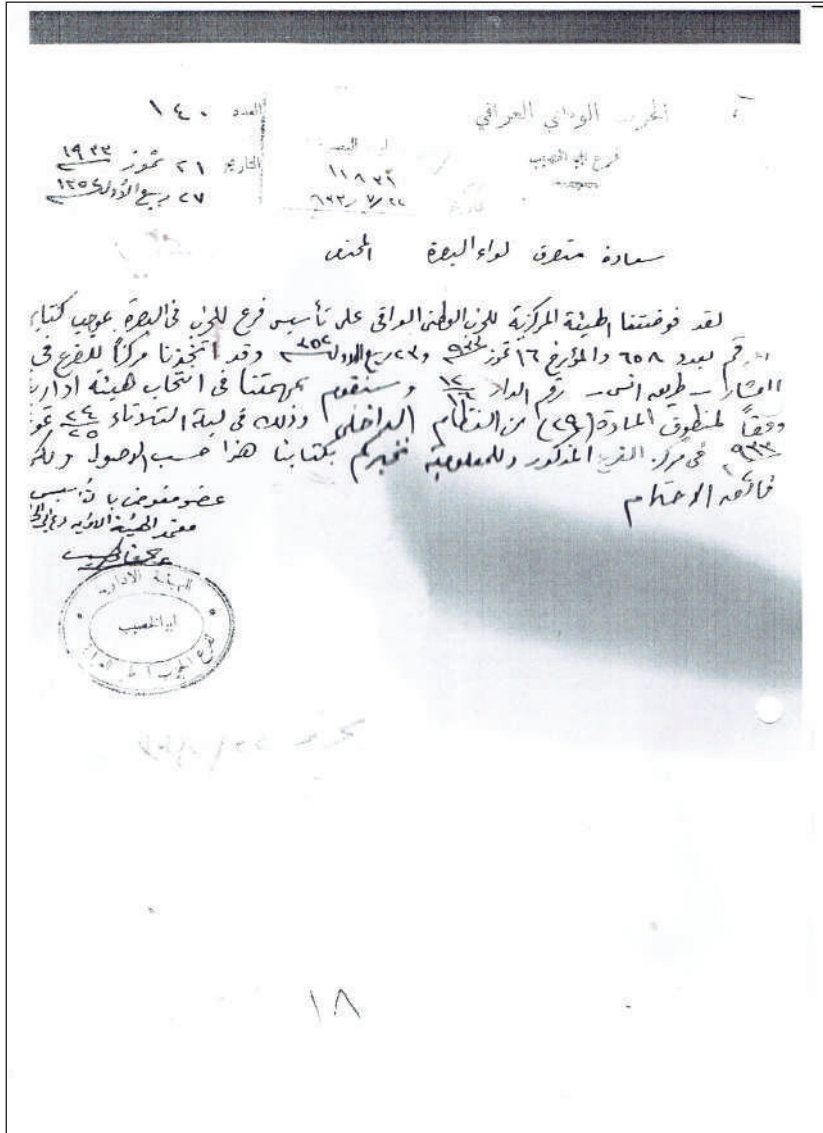 الحزب الوطني العراقي
فرع ابي الخصيب
العدد ١٤٠
التاريخ ٢١ تموز ١٩٣٣
٢٧ ربيع الأول ١٣٥٢
١١٨٣٩
٩٣٣/٧/٢٢
سعادة متصرف لواء البصرة المحترم
لقد فوضتنا الهيئة المركزية للحزب الوطني العراقي على تأسيس فرع للحزب في البصرة بموجب كتابها
المرقم بعدد ٦٥٨ والمؤرخ ١٦ تموز ٩٣٣ و٢٣ ربيع الاول ٣٥٢ وقد اتخذنا مركزاً للفرع في
العشار - طريق انس - رقم الدار ١٢/١٦ وسنقوم بمهمتنا في انتخاب هيئة ادارية
وفقاً لمنطوق المادة (٢٩) من النظام الداخلي وذلك في ليلة الثلاثاء ٢٤/٢٥ تموز
٩٣٣ في مركز الفرع المذكور وللمعلومية نخبركم بكتابنا هذا حسب الاصول ولكم
فائق الاحترام
عضو مفوض بالتأسيس
معتمد الهيئة الادارية
الهيئة الادارية
ابي الخصيب
لفرع الحزب الوطني العراقي
١٨